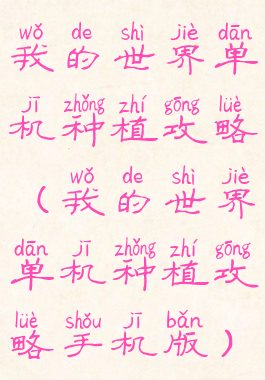 wǒ de shì jiè dān
我的世界单
jī zhǒng zhí gōng lüè
机种植攻略
wǒ de shì jiè
（我的世界
dān jī zhǒng zhí gōng
单机种植攻
lüè shǒu jī bǎn
略手机版）